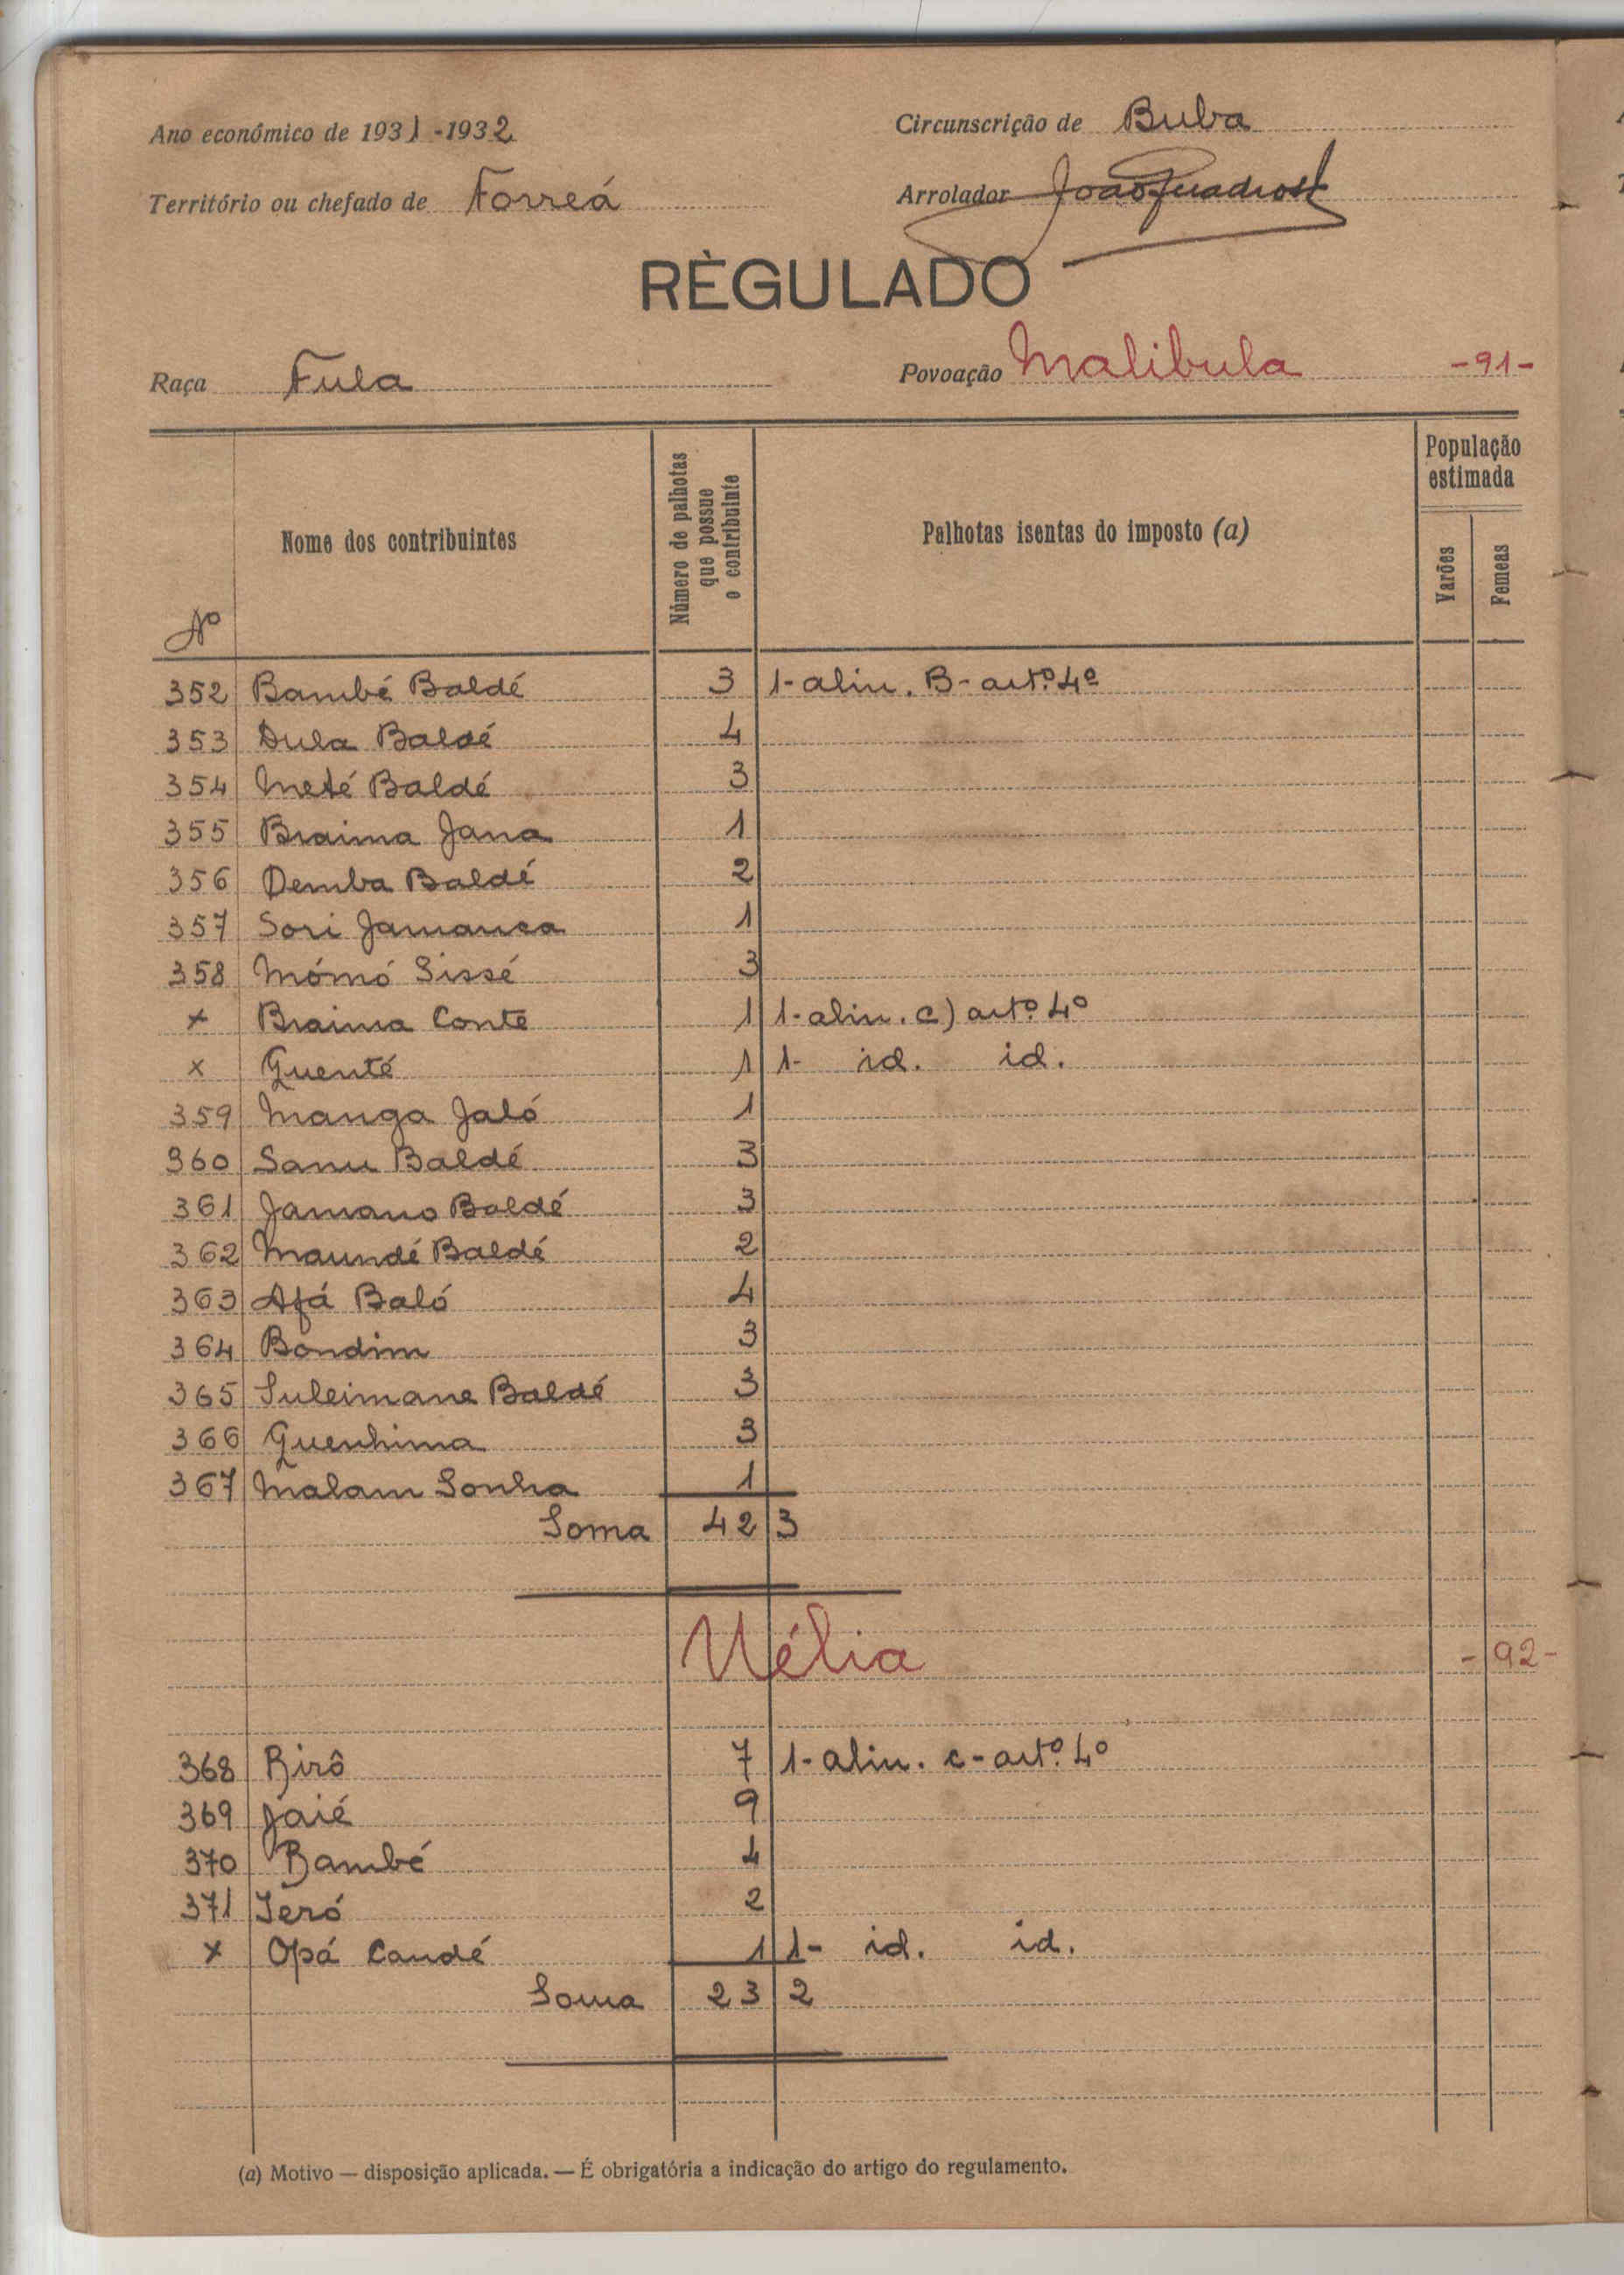 Ano económico de 1931-1932
Circunscrição de Buba
Território ou chefado de Forreá
Arrolador João Quadros
RÈGULADO
Raça Fula
Povoação Malibula -91-
Nº
Nome dos contribuintes
Número de palhotas que possue o contribuinte
Palhotas isentas do imposto (a)
População estimada
Varões
Femeas
352 Bambé Baldé 3 1-alin. B-artº. 4º
353 Dula Baldé 4
354 Meté Baldé 3
355 Braima Jana 1
356 Demba Baldé 2
357 Sori Jamanca 1
358 Mómó Sissé 3
x Braima Conte 1 1-alin. c) artº. 4º
x Quenté 1 1- id. id.
359 Manga Jaló 1
360 Sanu Baldé 3
361 Jamano Baldé 3
362 Maundé Baldé 2
363 Afá Baló 4
364 Bondim 3
365 Suleimane Baldé 3
366 Quenhima 3
367 Malam Sonha 1
Soma 42 3
Uélia -92-
368 Birô 7 1-alin. c-artº. 4º
369 Jaié 9
370 Bambé 4
371 Ieró 2
x Opá Candé 1 1- id. id.
Soma 23 2
(a) Motivo — disposição aplicada. — É obrigatória a indicação do artigo do regulamento.